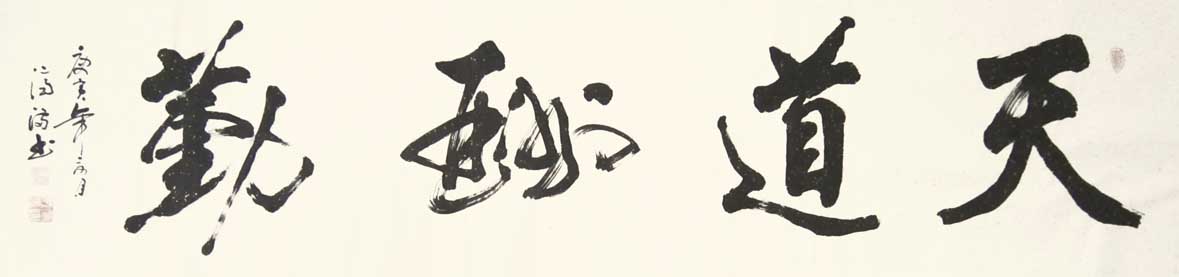 天道酬勤
庚寅年
书